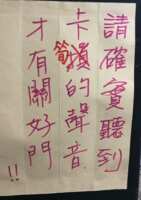 請確實聽到
卡筍的聲音
才有關好門
!!